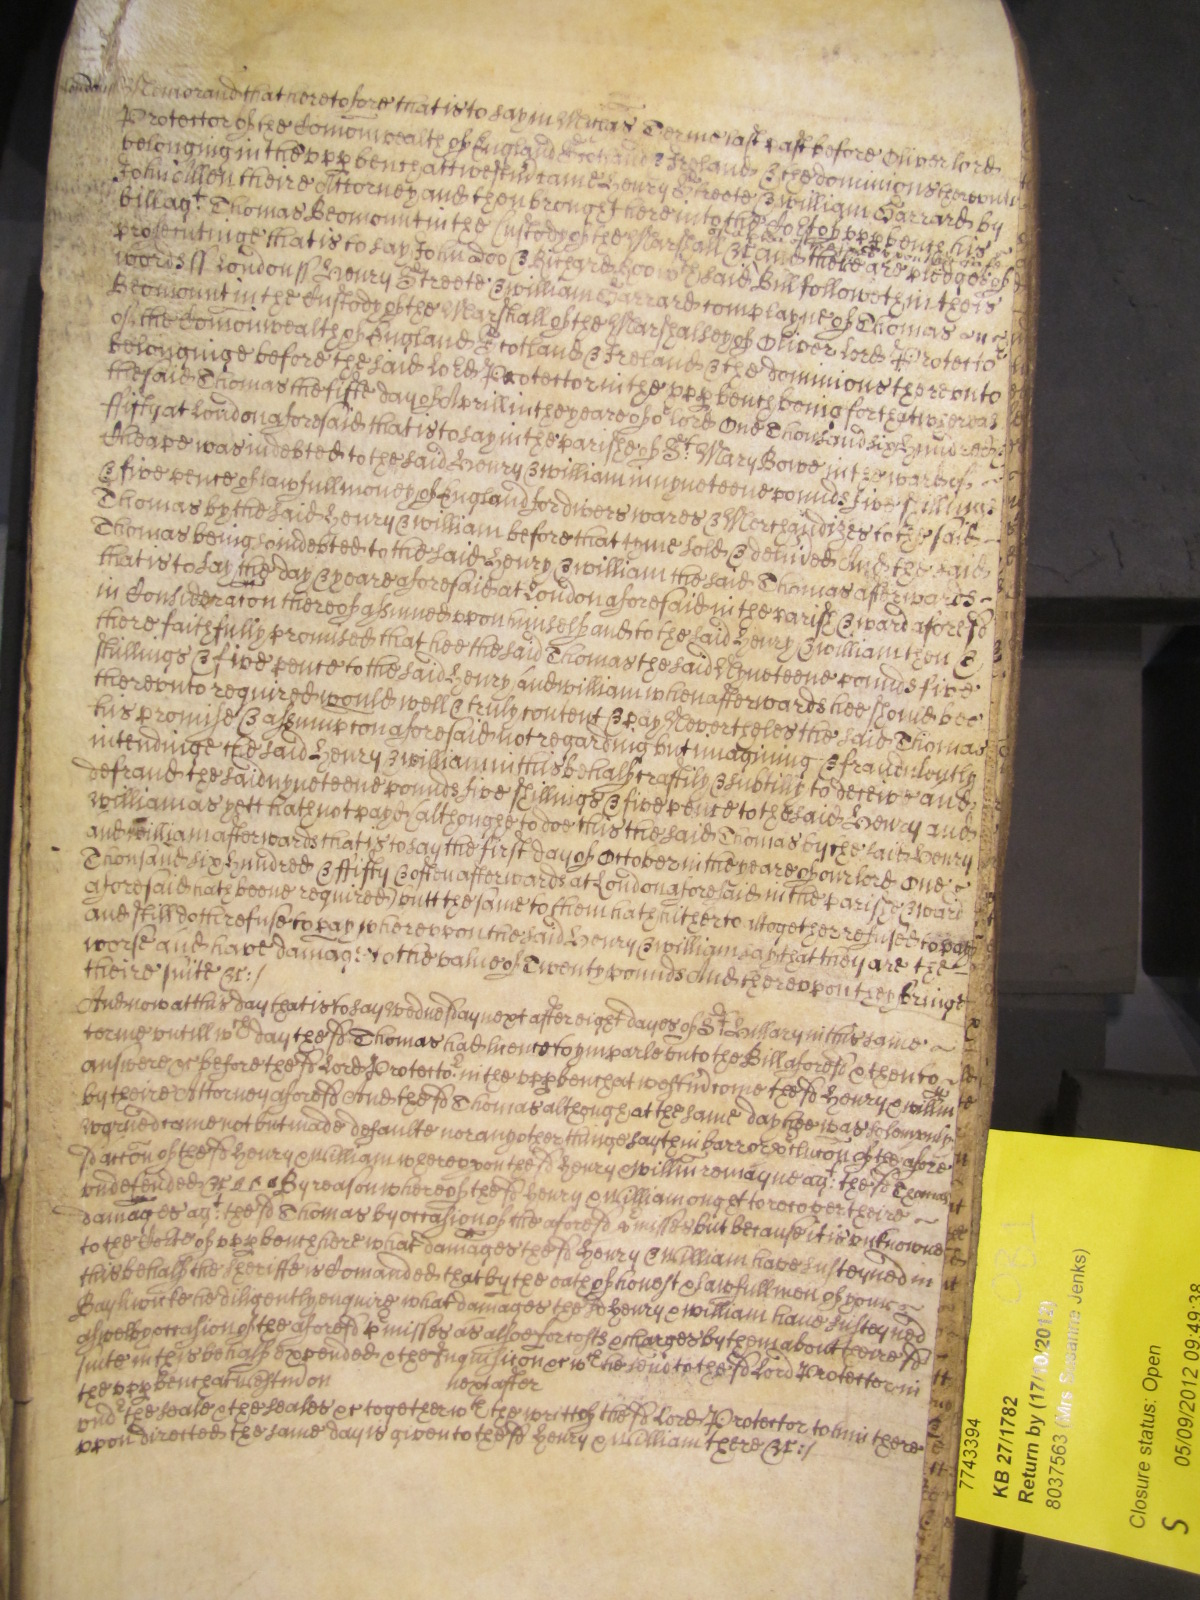 London ss Memorand that heretofore that is to say in Michās Terme last past before Oliver lord
Protector of the Comonwealth of England Scotland & Ireland & the dominions thereunto
belonging in the upp bench att westm̄ came Henry Streete & William Garrard by
John Allen theire Attorney and then brought here into the Cort of upp bench his
bill agt Thomas Beomount in the Custody of the Marshall &c and there are pledges of
prosecutinge that is to say John Doo & Richard Roo wch said Bill followeth in theis
words ss London ss Henry Streete & William Garrard complayne of Thomas
Beomount in the Custody of the Marshall of the Marshalsey of Oliver lord Protector
of the Comonwealth of England Scotland & Ireland & the dominions thereunto
belonginge before the said Lord Protector in the upp bench being for that whereas
the said Thomas the fifte day of Aprill in the yeare of or lord One Thousand six Hundred &
ffifty at London aforesaid that is to say in the parishe of St Mary Bowe in the warde of
Cheape was indebted to the said Henry & William in nyneteene pounds five shillings
& five pence of lawfull money of England for divers wares & Merchandizes to the said
Thomas by the said Henry & William before that tyme sold & delivĕed And the said
Thomas being soe indebted to the said Henry & William the said Thomas afterwards
that is to say the day & yeare aforesaid at London aforesaid in the parish & ward aforesd
in Consideracon thereof assumed uppon himself and to the said Henry & William then &
there faithfully promised that hee the said Thomas the said Nyneteene pounds five
shillings & five pence to the said Henry and William when afterwards hee should bee
thereunto required would well & truly content & pay Nevertheles the said Thomas
his promise & assumpcon aforesaid not regarding but imagining & fraudulently
intendinge the said Henry & William in this behalf craftily & subtilly to deceive and
defraud the said nyneteene pounds five shillings & five pence to the said Henry and
William as yett hath not payd (althoughe to doe this the said Thomas by the said Henry
and William afterwards that is to say the first day of October in the yeare of our lord One
Thousand six Hundred & ffifty & often afterwards at London aforesaid in the parishe & ward
aforesaid hath beene required) butt the same to them hath hitherto altogether refused to pay
and still doth refuse to pay whereuppon the said Henry & William say that they are the
worse and have damage to the value of Twenty pounds And thereuppon they bringe
theire suite &c:/
And now at this day that is to say Wednesday next after eight dayes of St Hillary in this same
terme untill wch day the sd Thomas had licence to imparle unto the Bill aforesd & then to
answere &c before the sd Lord Protector in the upp bench at westm̄ come the sd Henry & Willm̄
by theire Attorney aforesd And the sd Thomas although at the same day hee was solemnly
required came not but made defaulte nor any other thinge sayth in barr or p̱clucon of the afore
sd accon of the sd Henry & William whereuppon the sd Henry & Willm̄ remayne agt the sd Thomas
undefended &c By reason whereof the sd Henry & William ought to recover theire
damages agt the sd Thomas by occasion of the aforesd p̱misses but because it is unknowne
to the Corte of upp bench here what damages the sd Henry & William have susteyned in
this behalf the sheriffe is comanded that by the oath of honest & lawfull men of your
Bayliwicke he diligently enquire what damages the sd Henry & William have susteyned
as well by occasion of the aforesd p̱misses as alsoe for costs & charges by them about theire sd
suite in this behalf expended & the Inquisicon &c wch he send to the sd Lord Protector in
the upp bench at westm̄ on next after
undr the seale & the seales &c together wth the writt of the sd Lord Protector to him there
uppon directed the same day is given to the sd Henry & William there &c:/
7743394
KB 27/1782
Return by (17/10/2012)
8037563 (Mrs Susanne Jenks)
Closure status: Open
S 05/09/2012 09:49:38